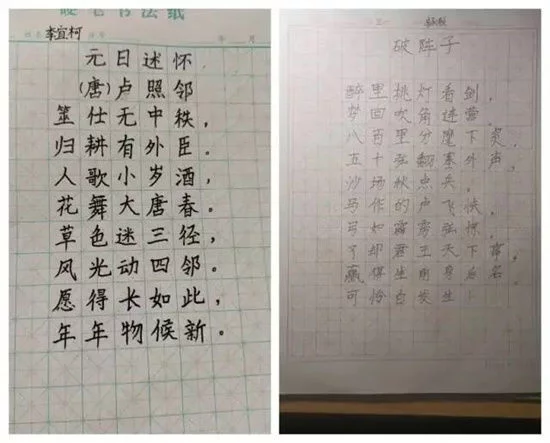 硬笔书法纸
姓名 李宜柯 年 月
元日述怀
(唐)卢照邻
筮仕无中秩，
归耕有外臣。
人歌小岁酒，
花舞大唐春。
草色迷三径，
风光动四邻。
愿得长如此，
年年物候新。
破阵子
醉里挑灯看剑，
梦回吹角连营。
八百里分麾下炙，
五十弦翻塞外声，
沙场秋点兵。
马作的卢飞快，
弓如霹雳弦惊。
了却君王天下事，
赢得生前身后名。
可怜白发生！